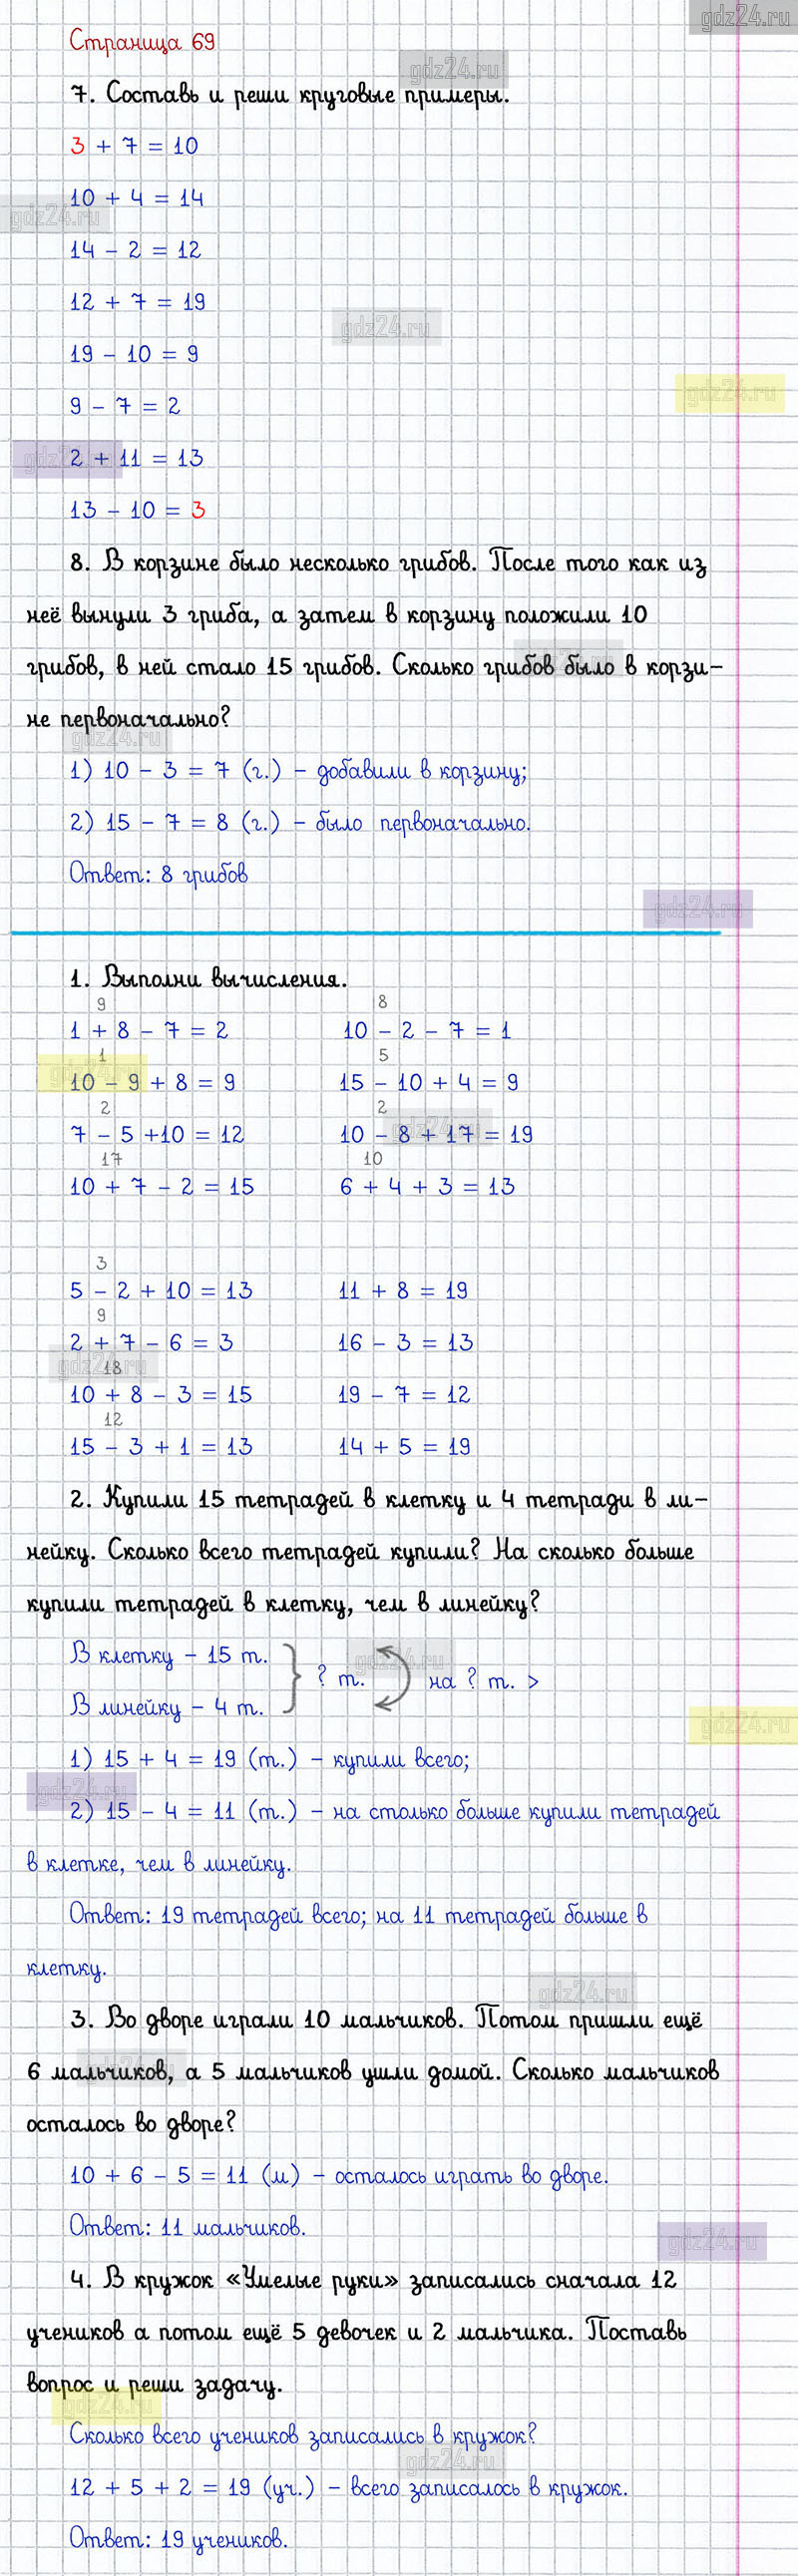 gdz24.ru
Страница 69
gdz24.ru
7. Составь и реши круговые примеры.
3 + 7 = 10
10 + 4 = 14
gdz24.ru
14 - 2 = 12
12 + 7 = 19
gdz24.ru
19 - 10 = 9
gdz24.ru
9 - 7 = 2
gdz24.ru
2 + 11 = 13
13 - 10 = 3
8. В корзине было несколько грибов. После того как из
неё вынули 3 гриба, а затем в корзину положили 10
gdz24.ru
грибов, в ней стало 15 грибов. Сколько грибов было в корзи-
не первоначально?
gdz24.ru
1) 10 - 3 = 7 (г.) - добавили в корзину;
2) 15 - 7 = 8 (г.) - было первоначально.
Ответ: 8 грибов
gdz24.ru
1. Выполни вычисления.
9 8
1 + 8 - 7 = 2 10 - 2 - 7 = 1
1 5
gdz24.ru
10 - 9 + 8 = 9 15 - 10 + 4 = 9
2 2
gdz24.ru
7 - 5 +10 = 12 10 - 8 + 17 = 19
17 10
10 + 7 - 2 = 15 6 + 4 + 3 = 13
3
5 - 2 + 10 = 13 11 + 8 = 19
9
2 + 7 - 6 = 3 16 - 3 = 13
gdz24.ru
18
10 + 8 - 3 = 15 19 - 7 = 12
12
15 - 3 + 1 = 13 14 + 5 = 19
2. Купили 15 тетрадей в клетку и 4 тетради в ли-
нейку. Сколько всего тетрадей купили? На сколько больше
купили тетрадей в клетку, чем в линейку?
gdz24.ru
В клетку - 15 т.
? т. на ? т. >
В линейку - 4 т.
gdz24.ru
1) 15 + 4 = 19 (т.) - купили всего;
gdz24.ru
2) 15 - 4 = 11 (т.) - на столько больше купили тетрадей
в клетке, чем в линейку.
Ответ: 19 тетрадей всего; на 11 тетрадей больше в
клетку.
gdz24.ru
3. Во дворе играли 10 мальчиков. Потом пришли ещё
gdz24.ru
6 мальчиков, а 5 мальчиков ушли домой. Сколько мальчиков
осталось во дворе?
10 + 6 - 5 = 11 (м) - осталось играть во дворе.
Ответ: 11 мальчиков.
gdz24.ru
4. В кружок «Умелые руки» записались сначала 12
учеников а потом ещё 5 девочек и 2 мальчика. Поставь
вопрос и реши задачу.
gdz24.ru
Сколько всего учеников записались в кружок?
gdz24.ru
12 + 5 + 2 = 19 (уч.) - всего записалось в кружок.
Ответ: 19 учеников.